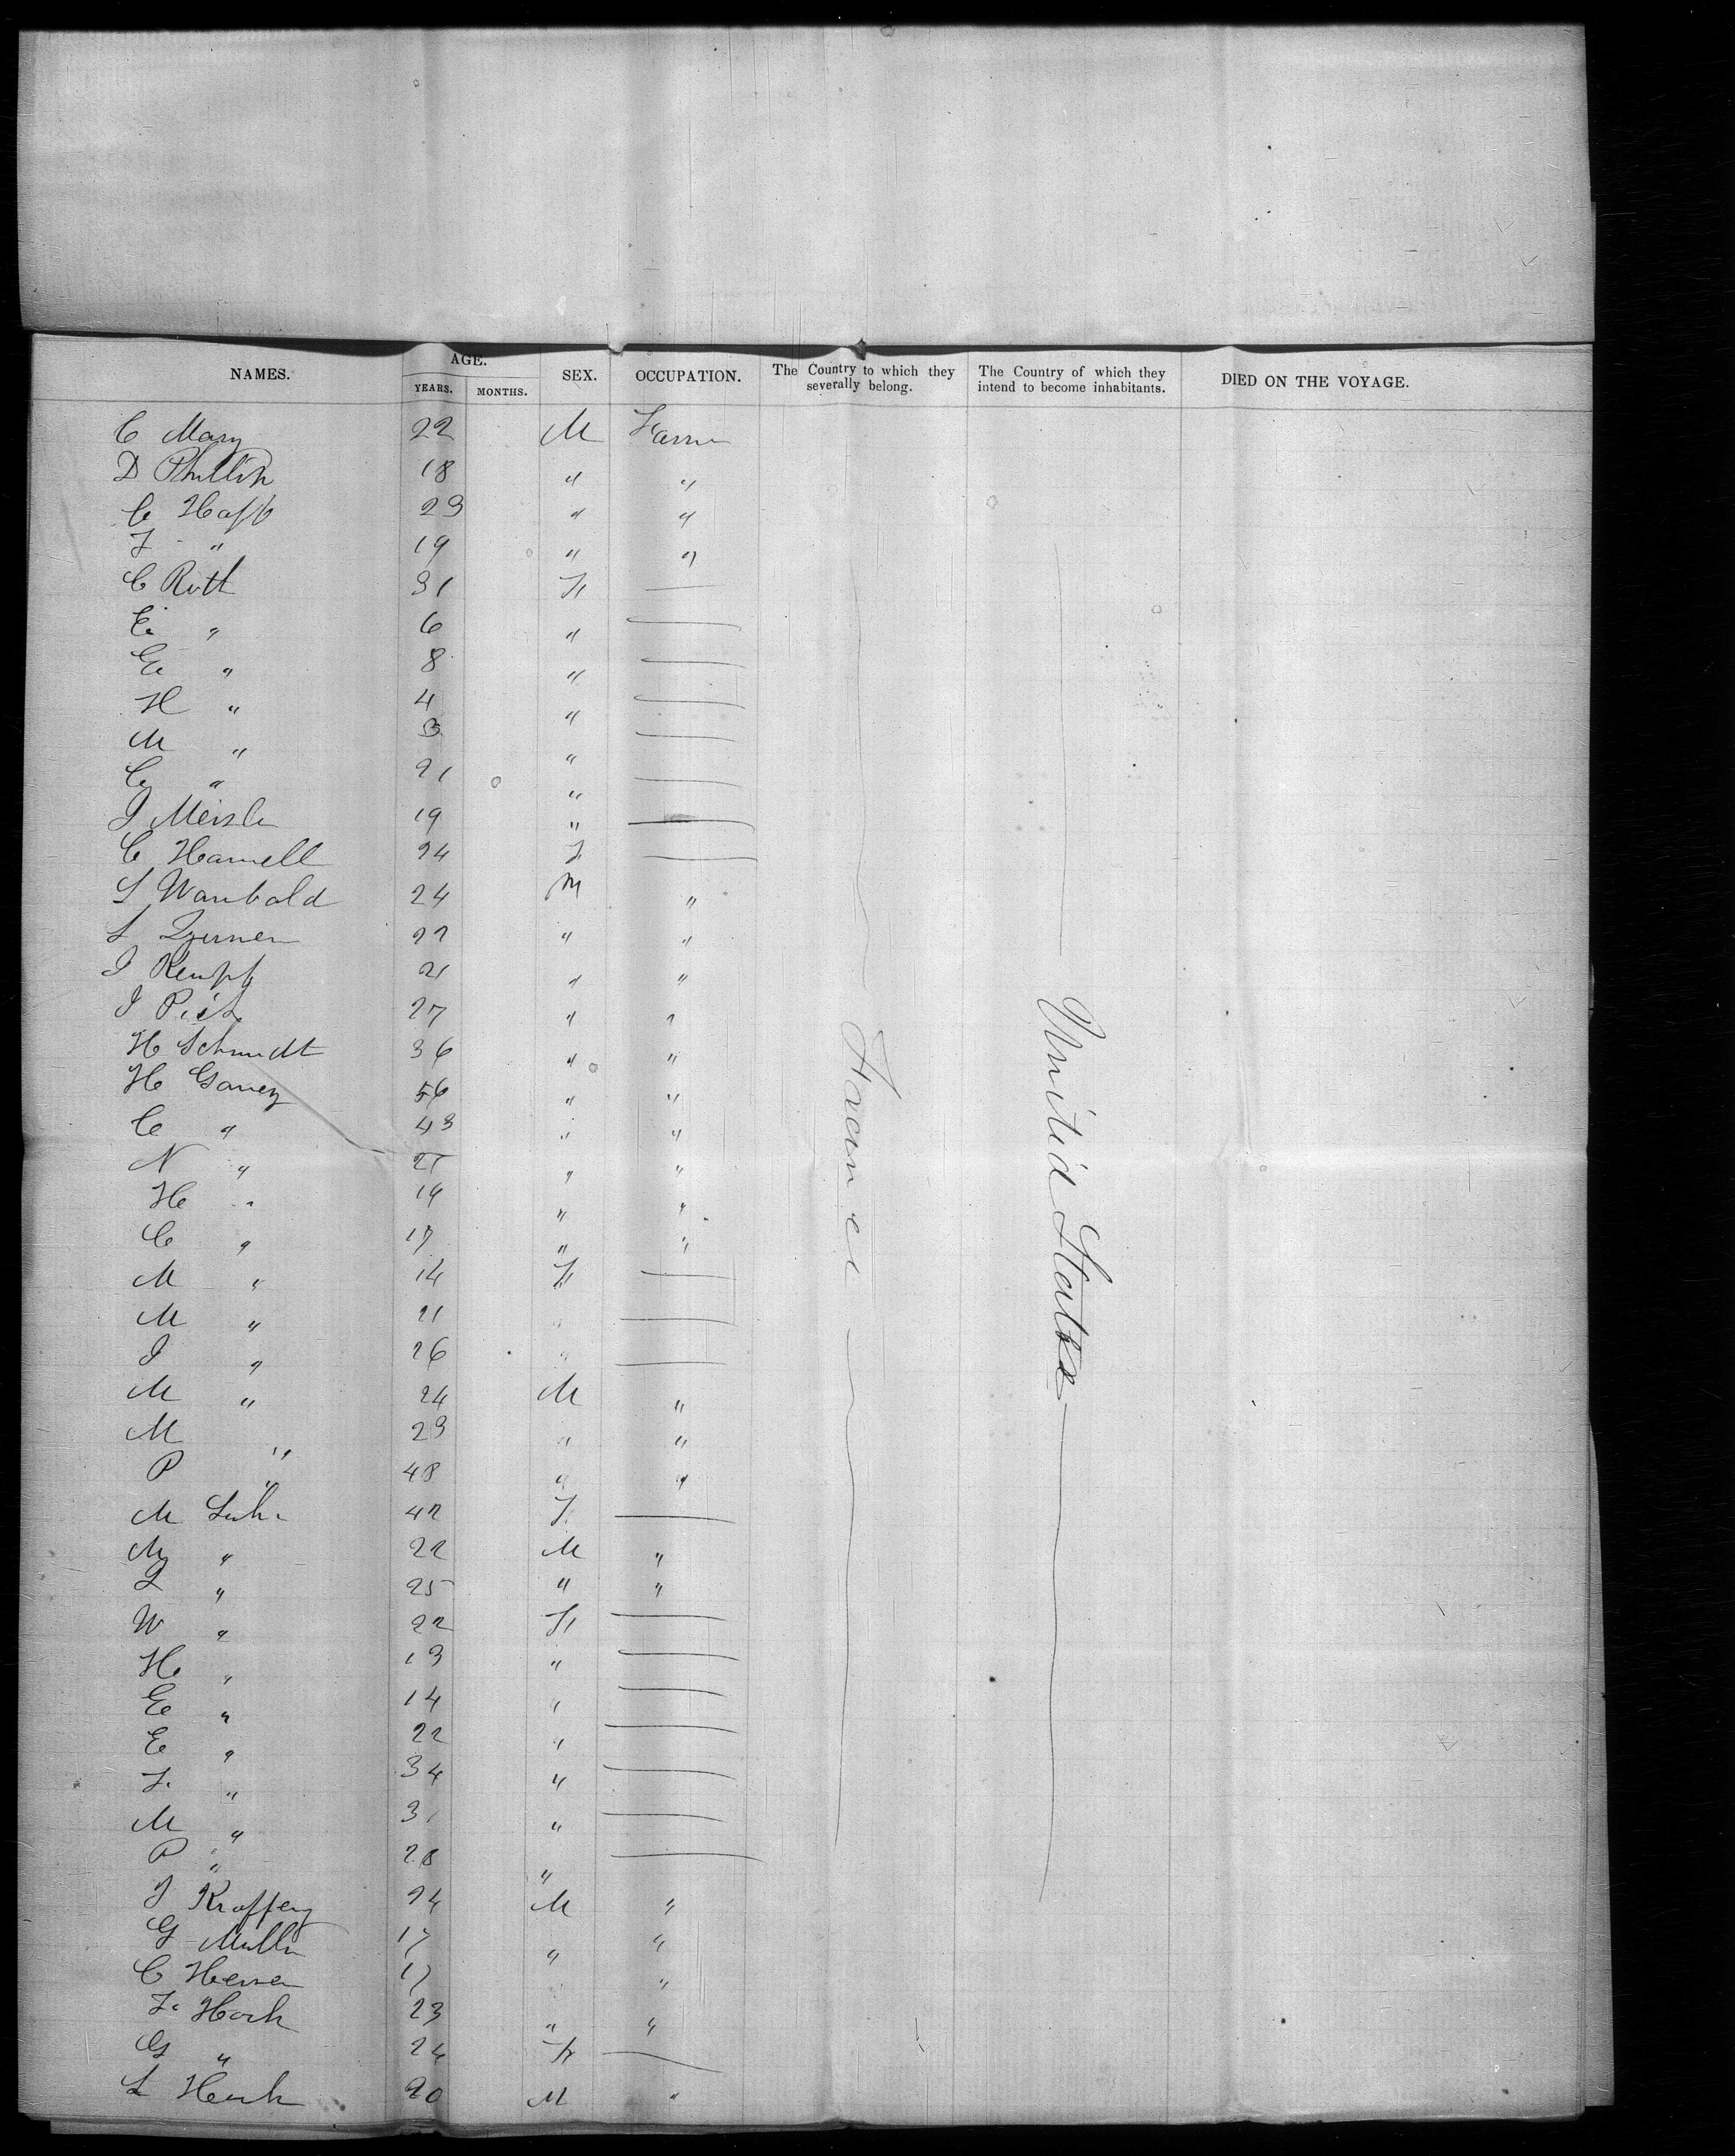 NAMES. AGE. YEARS. MONTHS. SEX. OCCUPATION. The Country to which they severally belong. The Country of which they intend to become inhabitants. DIED ON THE VOYAGE.
C Mary 22 M Farmer
D Phillip 18 " "
C Hapf 23 " "
J " 19 " "
C Roth 31 F —
E. " 6 " —
E " 8 " —
H " 4 " —
M " 3 " —
C " 21 " —
J Meisle 19 " —
C Hamell 24 F —
S Wambold 24 M "
L 22 " "
J Kempf 21 " "
J 27 " "
H Schmidt 36 " "
H Garrey 56 " "
C " 43 " "
N " 27 " "
H " 19 " "
C " 17 " "
M " 14 F —
M " 21 " —
J " 26 " —
M " 24 M "
M " 23 " "
P " 48 " "
M 42 F. —
M " 22 M "
L " 25 " "
W " 22 F —
H " 13 " —
E " 14 " —
E " 22 " —
F. " 34 " —
M " 31 " —
P " 28 " —
J Kroffery 24 M "
G Muller 17 " "
C 17 "
F. Hoch 23 " "
G " 24 F —
L 20 M "
France
United States